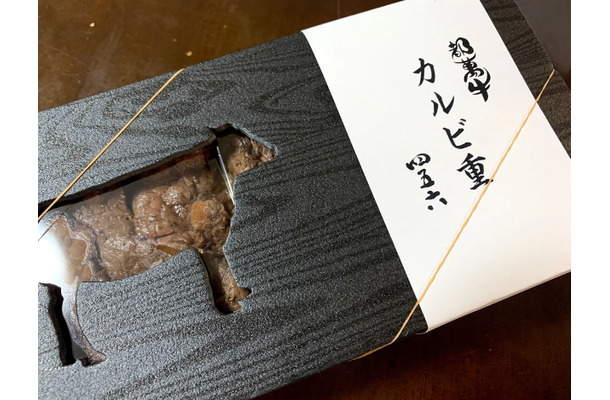 都萬牛
カルビ重
四五六